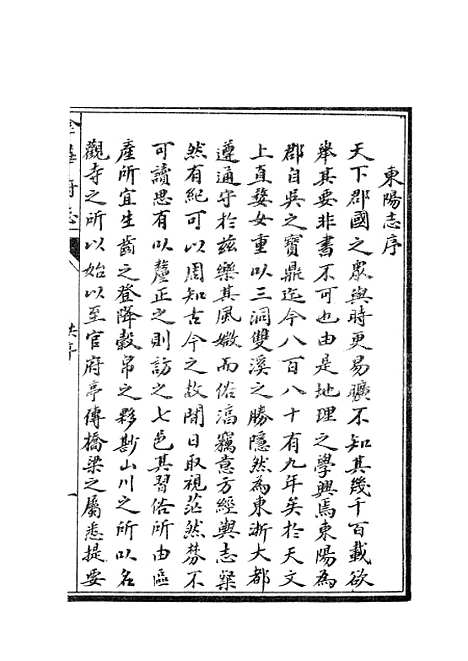 東陽志序
天下郡國之衆與時更易曠不知其幾千百載欲
舉其要非書不可也由是地理之學興焉東陽為
郡自吳之寶鼎迄今八百八十有九年矣於天文
上直婺女重以三洞雙溪之勝隱然為東浙大都
遵通守於兹樂其風媺而俗滈竊意方經輿志粲
然有紀可以周知古今之故間日取視茫然棼不
可讀思有以釐正之則訪之七邑其習俗所由區
產所宜生齒之登降穀帛之夥尠山川之所以名
觀寺之所以始以至官府亭傳橋梁之屬悉提要
金華府志